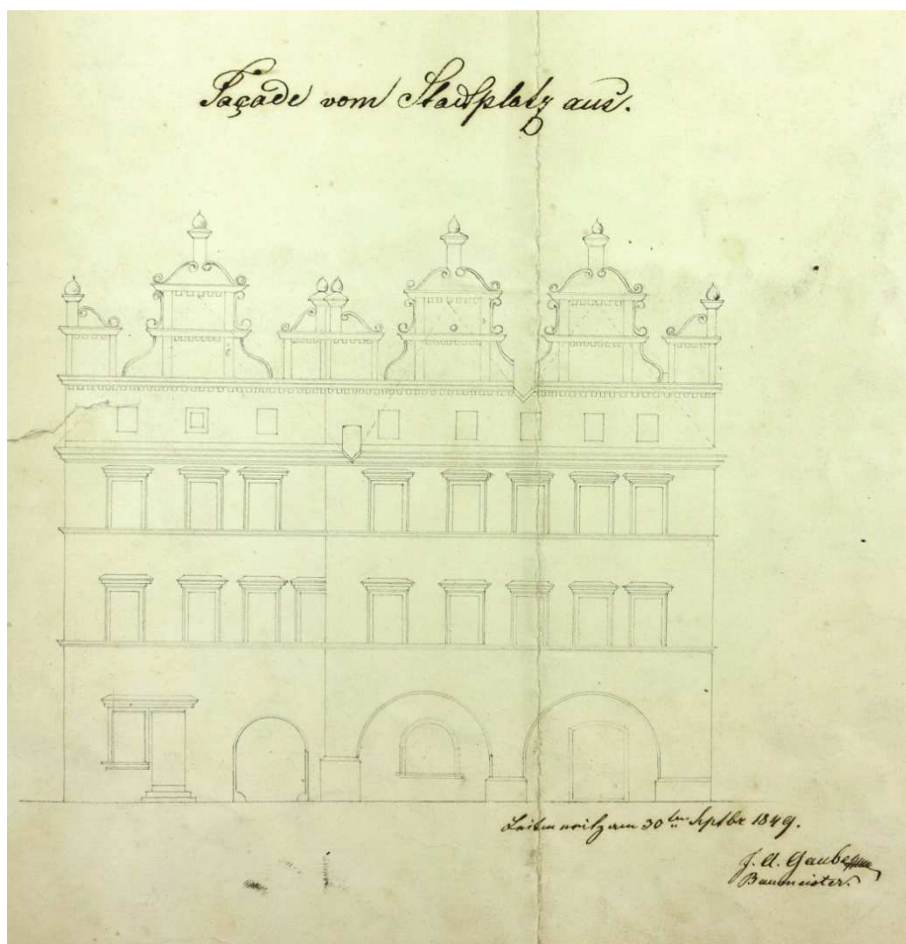 Façade vom Stadtplatz aus.
Leitmeritz am 30ten Septbr 1849.
J. A. Gaube
Baumeister.